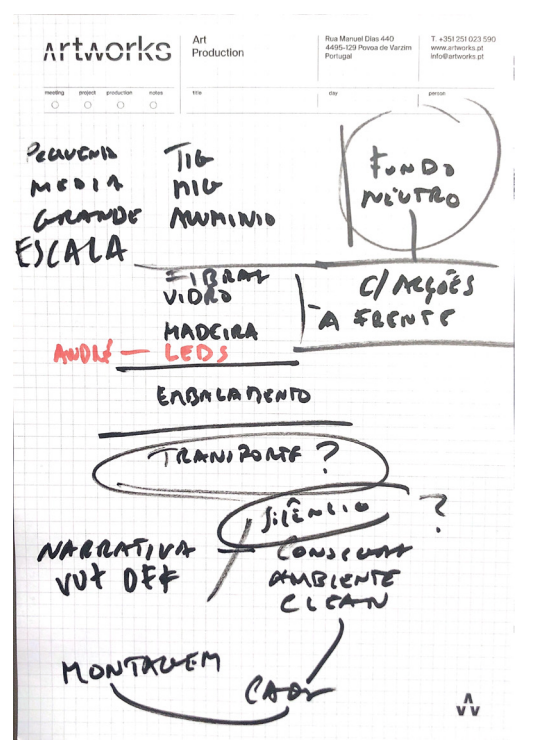 Artworks
Art
Production
Rua Manuel Dias 440
4495-129 Povoa de Varzim
Portugal
T. +351 251 023 590
www.artworks.pt
info@artworks.pt
meeting project production notes
title
day
person
PEQUENA
MEDIA
GRANDE
ESCALA
TIG
MIG
ALUMINIO
FUNDO
NEUTRO
FIBRAS
VIDRO
MADEIRA
C/ ACÇÕES
A FRENTE
ANDRÉ — LEDS
EMBALAMENTO
TRANSPORTE ?
SILÊNCIO ?
NARRATIVA
AMBIENTE
CLEAN
MONTAGEM
CAOS